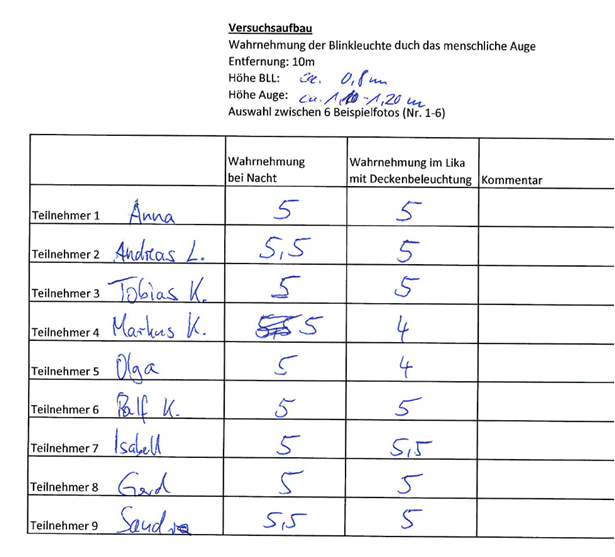 Versuchsaufbau
Wahrnehmung der Blinkleuchte duch das menschliche Auge
Entfernung: 10m
Höhe BLL: ca. 0,8m
Höhe Auge: ca. 1,10-1,20 m
Auswahl zwischen 6 Beispielfotos (Nr. 1-6)
Wahrnehmung bei Nacht Wahrnehmung im Lika mit Deckenbeleuchtung Kommentar
Teilnehmer 1 Anna 5 5
Teilnehmer 2 Andreas L. 5,5 5
Teilnehmer 3 Tobias K. 5 5
Teilnehmer 4 Markus K. 5 4
Teilnehmer 5 Olga 5 4
Teilnehmer 6 Ralf K. 5 5
Teilnehmer 7 Isabell 5 5,5
Teilnehmer 8 Gerd 5 5
Teilnehmer 9 Sandra 5,5 5